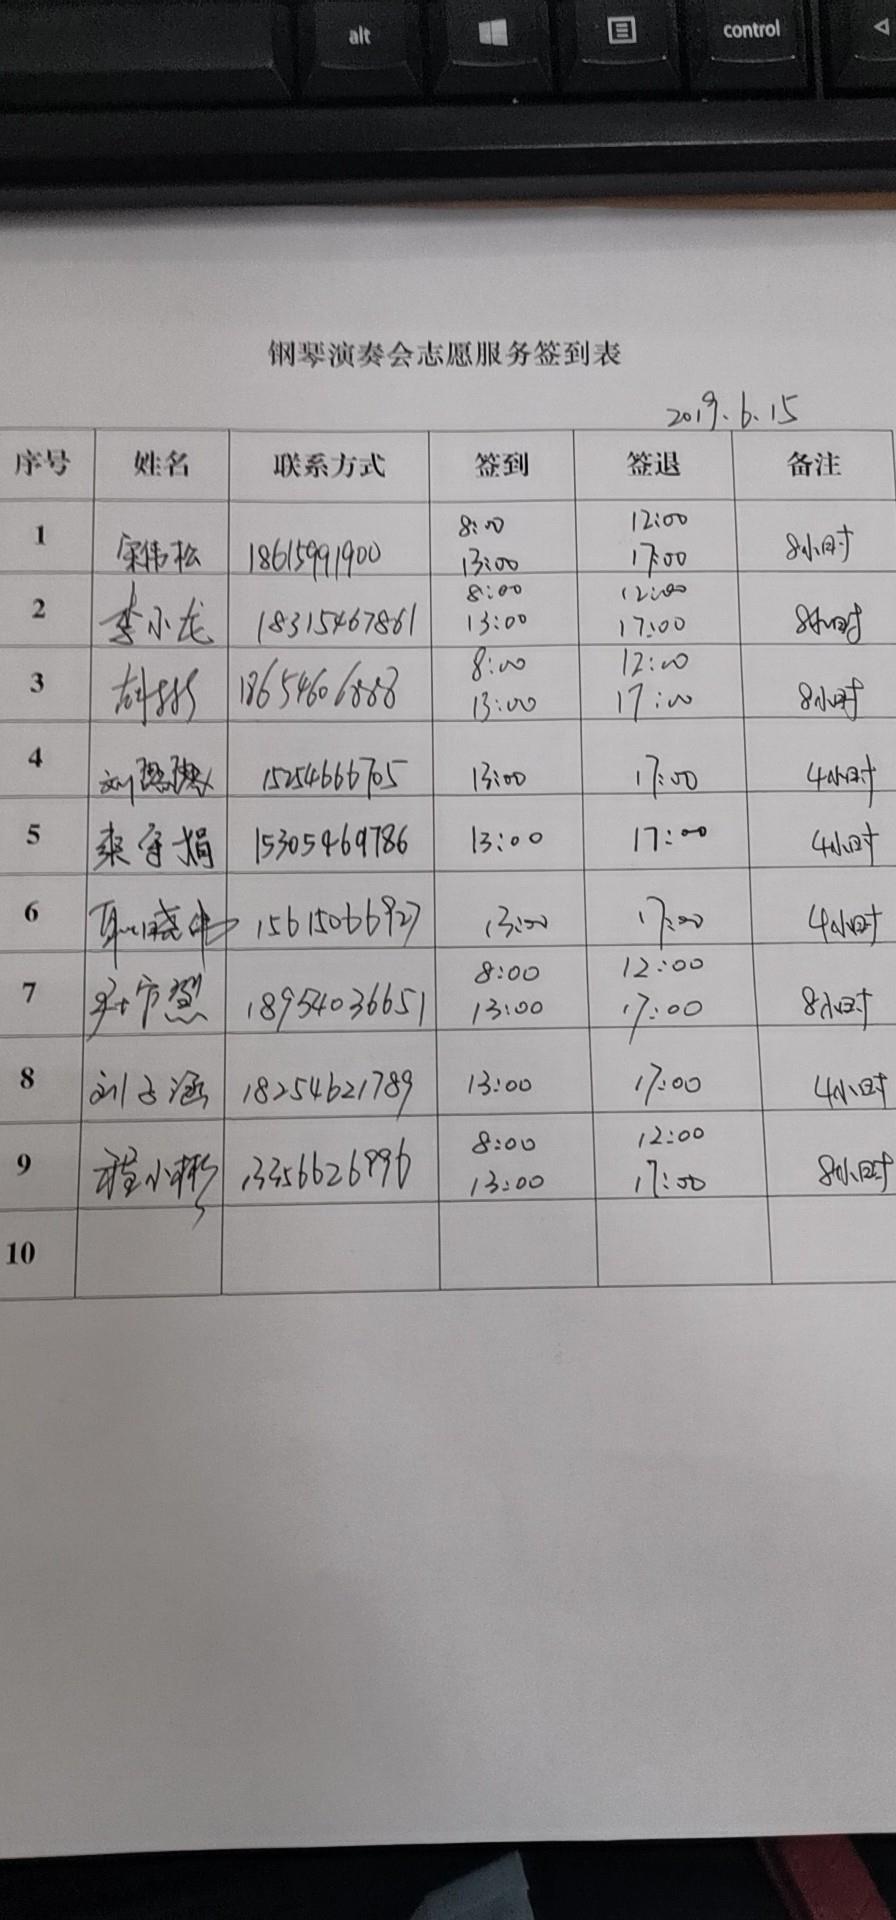 alt
control
钢琴演奏会志愿服务签到表
2019.6.15
序号 姓名 联系方式 签到 签退 备注
1 宋伟松 18615991900 8:00 13:00 12:00 17:00 8小时
2 李小龙 18315467861 8:00 13:00 12:00 17:00 8小时
3 18654606888 8:00 13:00 12:00 17:00 8小时
4 刘 15254666705 13:00 17:00 4小时
5 栾守娟 15305469786 13:00 17:00 4小时
6 耿晓伟 15615066927 13:00 17:00 4小时
7 18954036651 8:00 13:00 12:00 17:00 8小时
8 刘子涵 18254621789 13:00 17:00 4小时
9 程小彬 13356626996 8:00 13:00 12:00 17:00 8小时
10